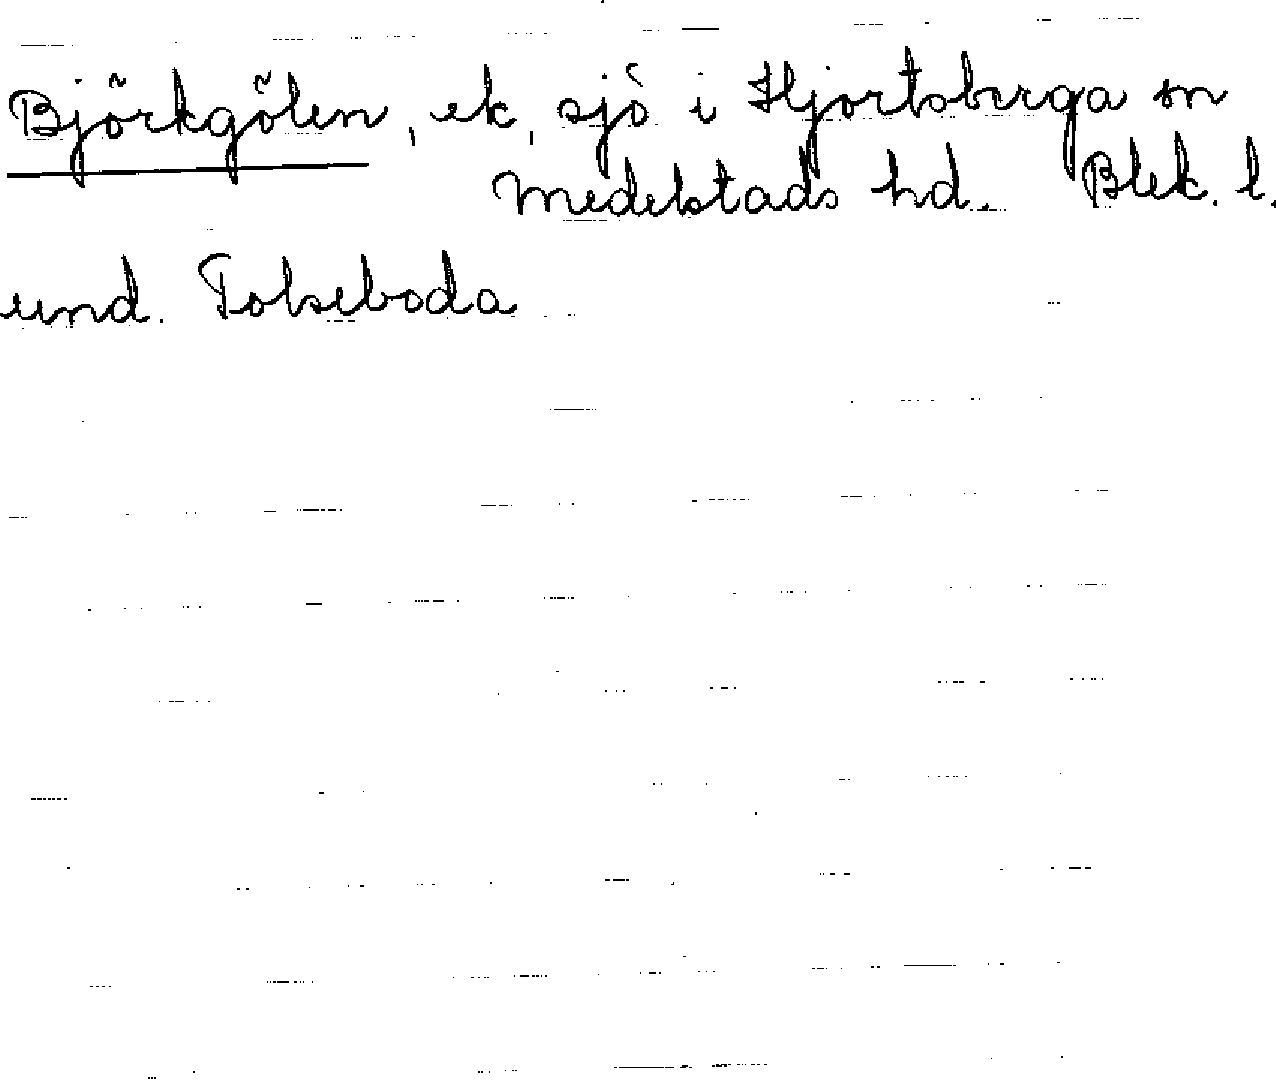 Björkgölen, ek, sjö i Hjortsberga sn
Medelstads hd. Blek. l.
und. Tolseboda